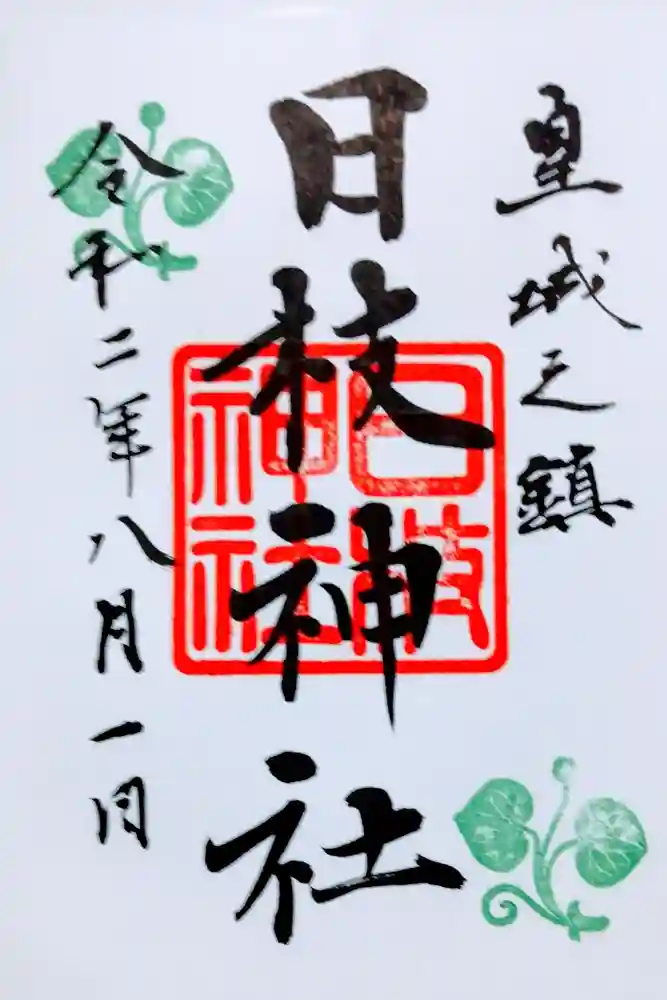 皇城之鎮
日枝神社
日枝神社
令和二年八月一日